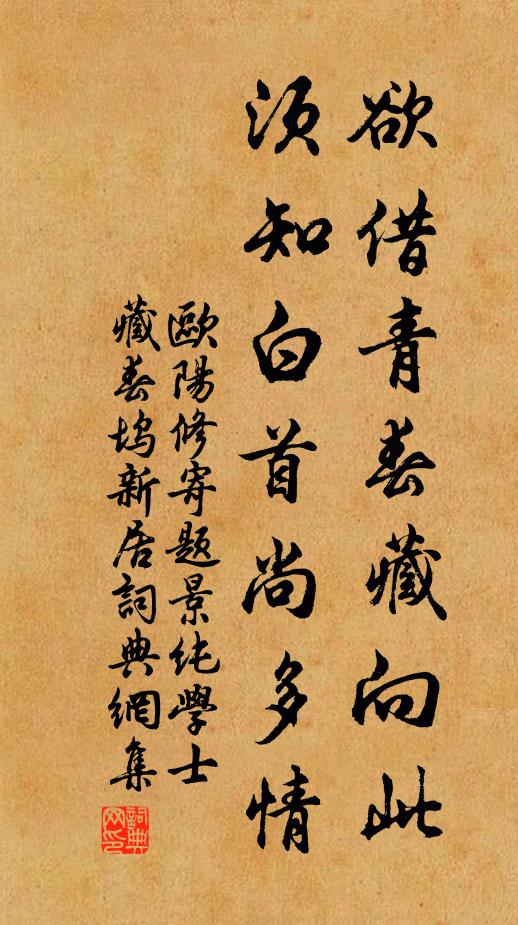 欲借青春藏向此
須知白首尚多情
歐陽修寄題景純學士
藏春塢新居詞典網集
詞典网印